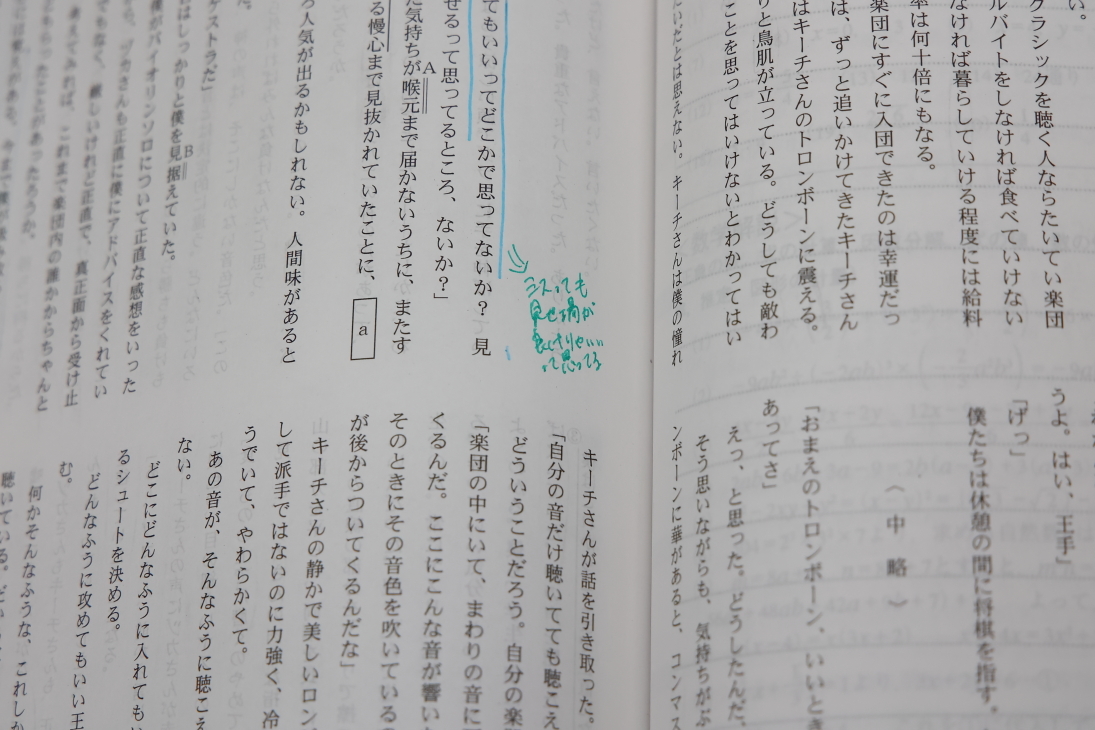 い。
クラシックを聴く人ならたいてい楽団
ルバイトをしなければ食べていけない
なければ暮らしていける程度には給料
率は何十倍にもなる。
楽団にすぐに入団できたのは幸運だっ
は、ずっと追いかけてきたキーチさん
はキーチさんのトロンボーンに震える。
りと鳥肌が立っている。どうしても敵わ
ことを思ってはいけないとわかってはい
たいたとは思えない。キーチさんは僕の憧れ
うよ。はい、王手」
「げっ」
僕たちは休憩の間に将棋を指す。
〈中略〉
「おまえのトロンボーン、いいとき
あってさ」
えっ、と思った。どうしたんだ、
そう思いながらも、気持ちがぶ
ンボーンに華があると、コンマス
てもいいってどこかで思ってないか? 見
せるって思ってるところ、ないか?」
た気持ちがA喉元まで届かないうちに、またす
る慢心まで見抜かれていたことに、a
ろ人気が出るかもしれない。人間味があると
ケストラだ」
はしっかりと僕を見B据えていた。
僕がバイオリンソロについて正直な感想をいった
から、ヅカさんも正直に僕にアドバイスをくれてい
でもなく、厳しいけれど正直で、真正面から受け止
考えてみれば、これまで楽団内の誰かからちゃんと
もらったことがあったろうか。
ミスっても
見せ場が
良けりゃいい
って思ってる
キーチさんが話を引き取った。
「自分の音だけ聴いてても聴こえ
どういうことだろう。自分の楽
「楽団の中にいて、まわりの音に
くるんだ。ここにこんな音が響い
そのときにその音色を吹いている
が後からついてくるんだな」
キーチさんの静かで美しいロン
して派手ではないのに力強く、冷
うでいて、やわらかくて。
あの音が、そんなふうに聴こえ
ない。
どこにどんなふうに入れてもい
るシュートを決める。
どんなふうに攻めてもいい王
む。
何かそんなふうな、これしか
聴いている。